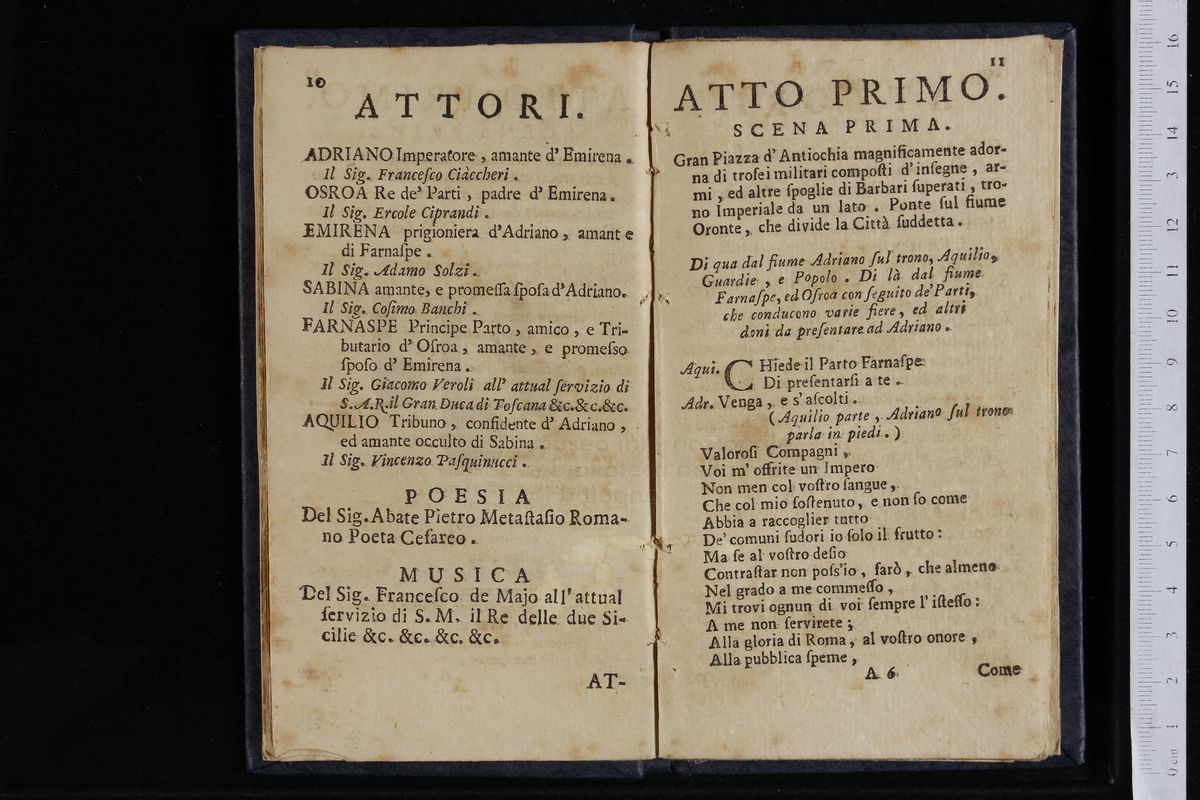 10
ATTORI.
ADRIANO Imperatore, amante d' Emirena.
Il Sig. Franceſco Ciaccheri.
OSROA Re de' Parti, padre d' Emirena.
Il Sig. Ercole Ciprandi.
EMIRENA prigioniera d'Adriano, amante
di Farnaſpe.
Il Sig. Adamo Solzi.
SABINA amante, e promeſſa ſpoſa d'Adriano.
Il Sig. Coſimo Banchi.
FARNASPE Principe Parto, amico, e Tri-
butario d' Oſroa, amante, e promeſso
ſpoſo d' Emirena.
Il Sig. Giacomo Veroli all' attual ſervizio di
S. A. R. il Gran Duca di Toſcana &c. &c. &c.
AQUILIO Tribuno, confidente d' Adriano,
ed amante occulto di Sabina.
Il Sig. Vincenzo Paſquinucci.
POESIA
Del Sig. Abate Pietro Metaſtaſio Roma-
no Poeta Ceſareo.
MUSICA
Del Sig. Franceſco de Majo all' attual
ſervizio di S. M. il Re delle due Si-
cilie &c. &c. &c. &c.
AT-
11
ATTO PRIMO.
SCENA PRIMA.
Gran Piazza d' Antiochia magnificamente ador-
na di trofei militari compoſti d' inſegne, ar-
mi, ed altre ſpoglie di Barbari ſuperati, tro-
no Imperiale da un lato. Ponte ſul fiume
Oronte, che divide la Città ſuddetta.
Di qua dal fiume Adriano ſul trono, Aquilio,
Guardie, e Popolo. Di là dal fiume
Farnaſpe, ed Oſroa con ſeguito de' Parti,
che conducono varie fiere, ed altri
doni da preſentare ad Adriano.
Aqui. CHiede il Parto Farnaſpe
Di preſentarſi a te.
Adr. Venga, e s' aſcolti.
(Aquilio parte, Adriano ſul trono
parla in piedi.)
Valoroſi Compagni,
Voi m' offrite un Impero
Non men col voſtro ſangue,
Che col mio ſoſtenuto, e non ſo come
Abbia a raccoglier tutto
De' comuni ſudori io ſolo il frutto:
Ma ſe al voſtro deſio
Contraſtar non poſs'io, farò, che almeno
Nel grado a me commeſſo,
Mi trovi ognun di voi ſempre l' iſteſſo:
A me non ſervirete;
Alla gloria di Roma, al voſtro onore,
Alla pubblica ſpeme,
A 6
Come
0 cm 1 2 3 4 5 6 7 8 9 10 11 12 13 14 15 16